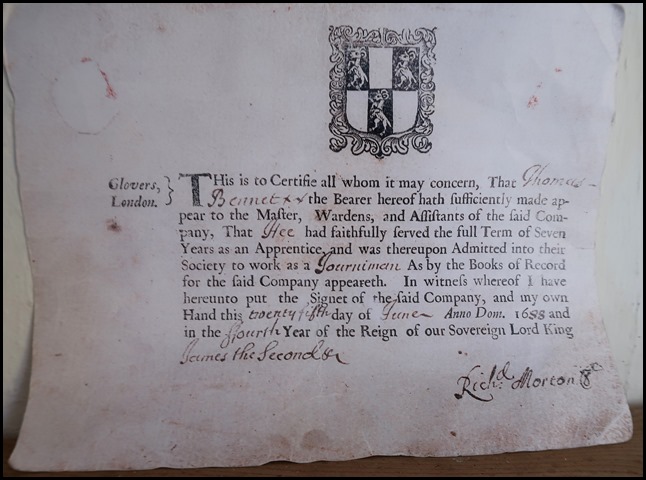 Glovers,
London.
THis is to Certifie all whom it may concern, That Thomas
Bennet the Bearer hereof hath sufficiently made ap-
pear to the Master, Wardens, and Assistants of the said Com-
pany, That Hee had faithfully served the full Term of Seven
Years as an Apprentice, and was thereupon Admitted into their
Society to work as a Journiman As by the Books of Record
for the said Company appeareth. In witness whereof I have
hereunto put the Signet of the said Company, and my own
Hand this twenty fifth day of June Anno Dom. 1688 and
in the ffourth Year of the Reign of our Sovereign Lord King
James the Second &c
Richd. Morton